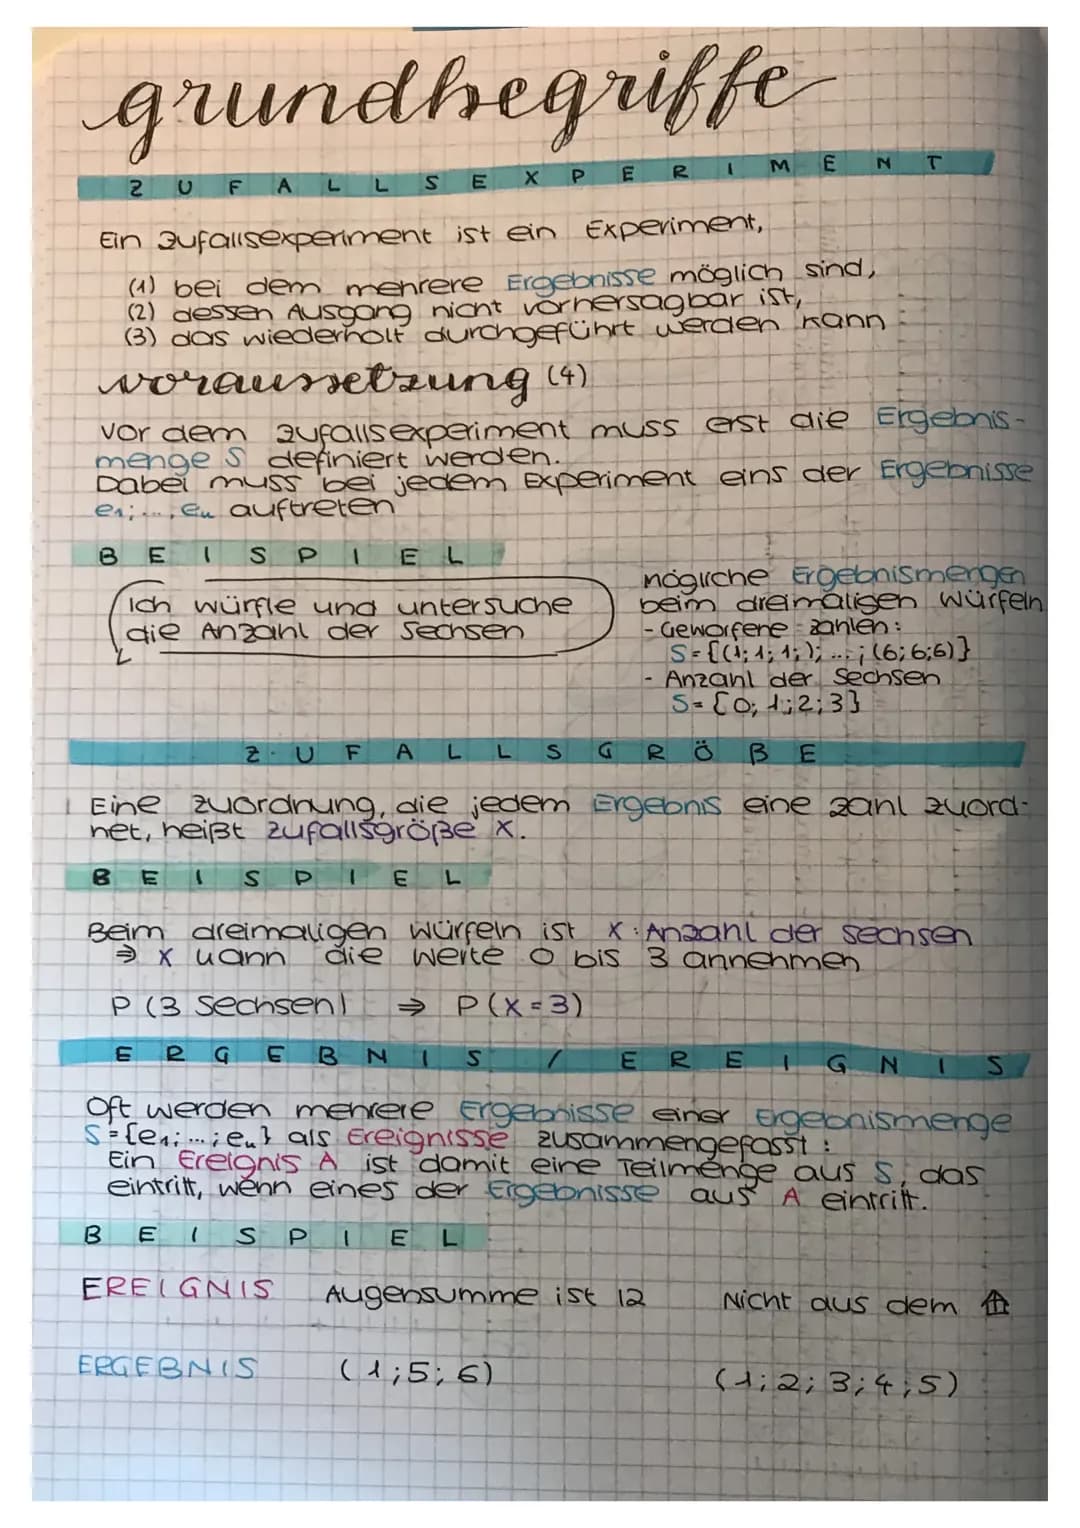 grundbegriffe
ZUFALLSEXPERIMENT
Ein Zufallsexperiment ist ein Experiment,
(1) bei dem mehrere Ergebnisse möglich sind,
(2) dessen Ausgang nicht vorhersagbar ist,
(3) das wiederholt durchgeführt werden kann
voraussetzung (4)
Vor dem Zufallsexperiment muss erst die Ergebnis-
menge S definiert werden.
Dabei muss bei jedem Experiment eins der Ergebnisse
e₁; ..., eₙ auftreten
BEISPIEL
Ich würfle und untersuche
die Anzahl der Sechsen
mögliche Ergebnismengen
beim dreimaligen Würfeln
- Geworfene Zahlen:
S={(1; 1; 1;); ...; (6;6;6)}
- Anzahl der Sechsen
S={0; 1;2;3}
ZUFALLSGRÖßE
Eine Zuordnung, die jedem Ergebnis eine Zahl zuord-
net, heißt Zufallsgröße X.
BEISPIEL
Beim dreimaligen Würfeln ist X: Anzahl der Sechsen
⇒ X kann die Werte 0 bis 3 annehmen
P (3 Sechsen) ⇒ P(X=3)
ERGEBNIS / EREIGNIS
Oft werden mehrere Ergebnisse einer Ergebnismenge
S={e₁; ...; eₙ} als Ereignisse zusammengefasst:
Ein Ereignis A ist damit eine Teilmenge aus S, das
eintritt, wenn eines der Ergebnisse aus A eintritt.
BEISPIEL
EREIGNIS Augensumme ist 12 Nicht aus dem ⇑
ERGEBNIS (1;5;6) (1;2;3;4;5)